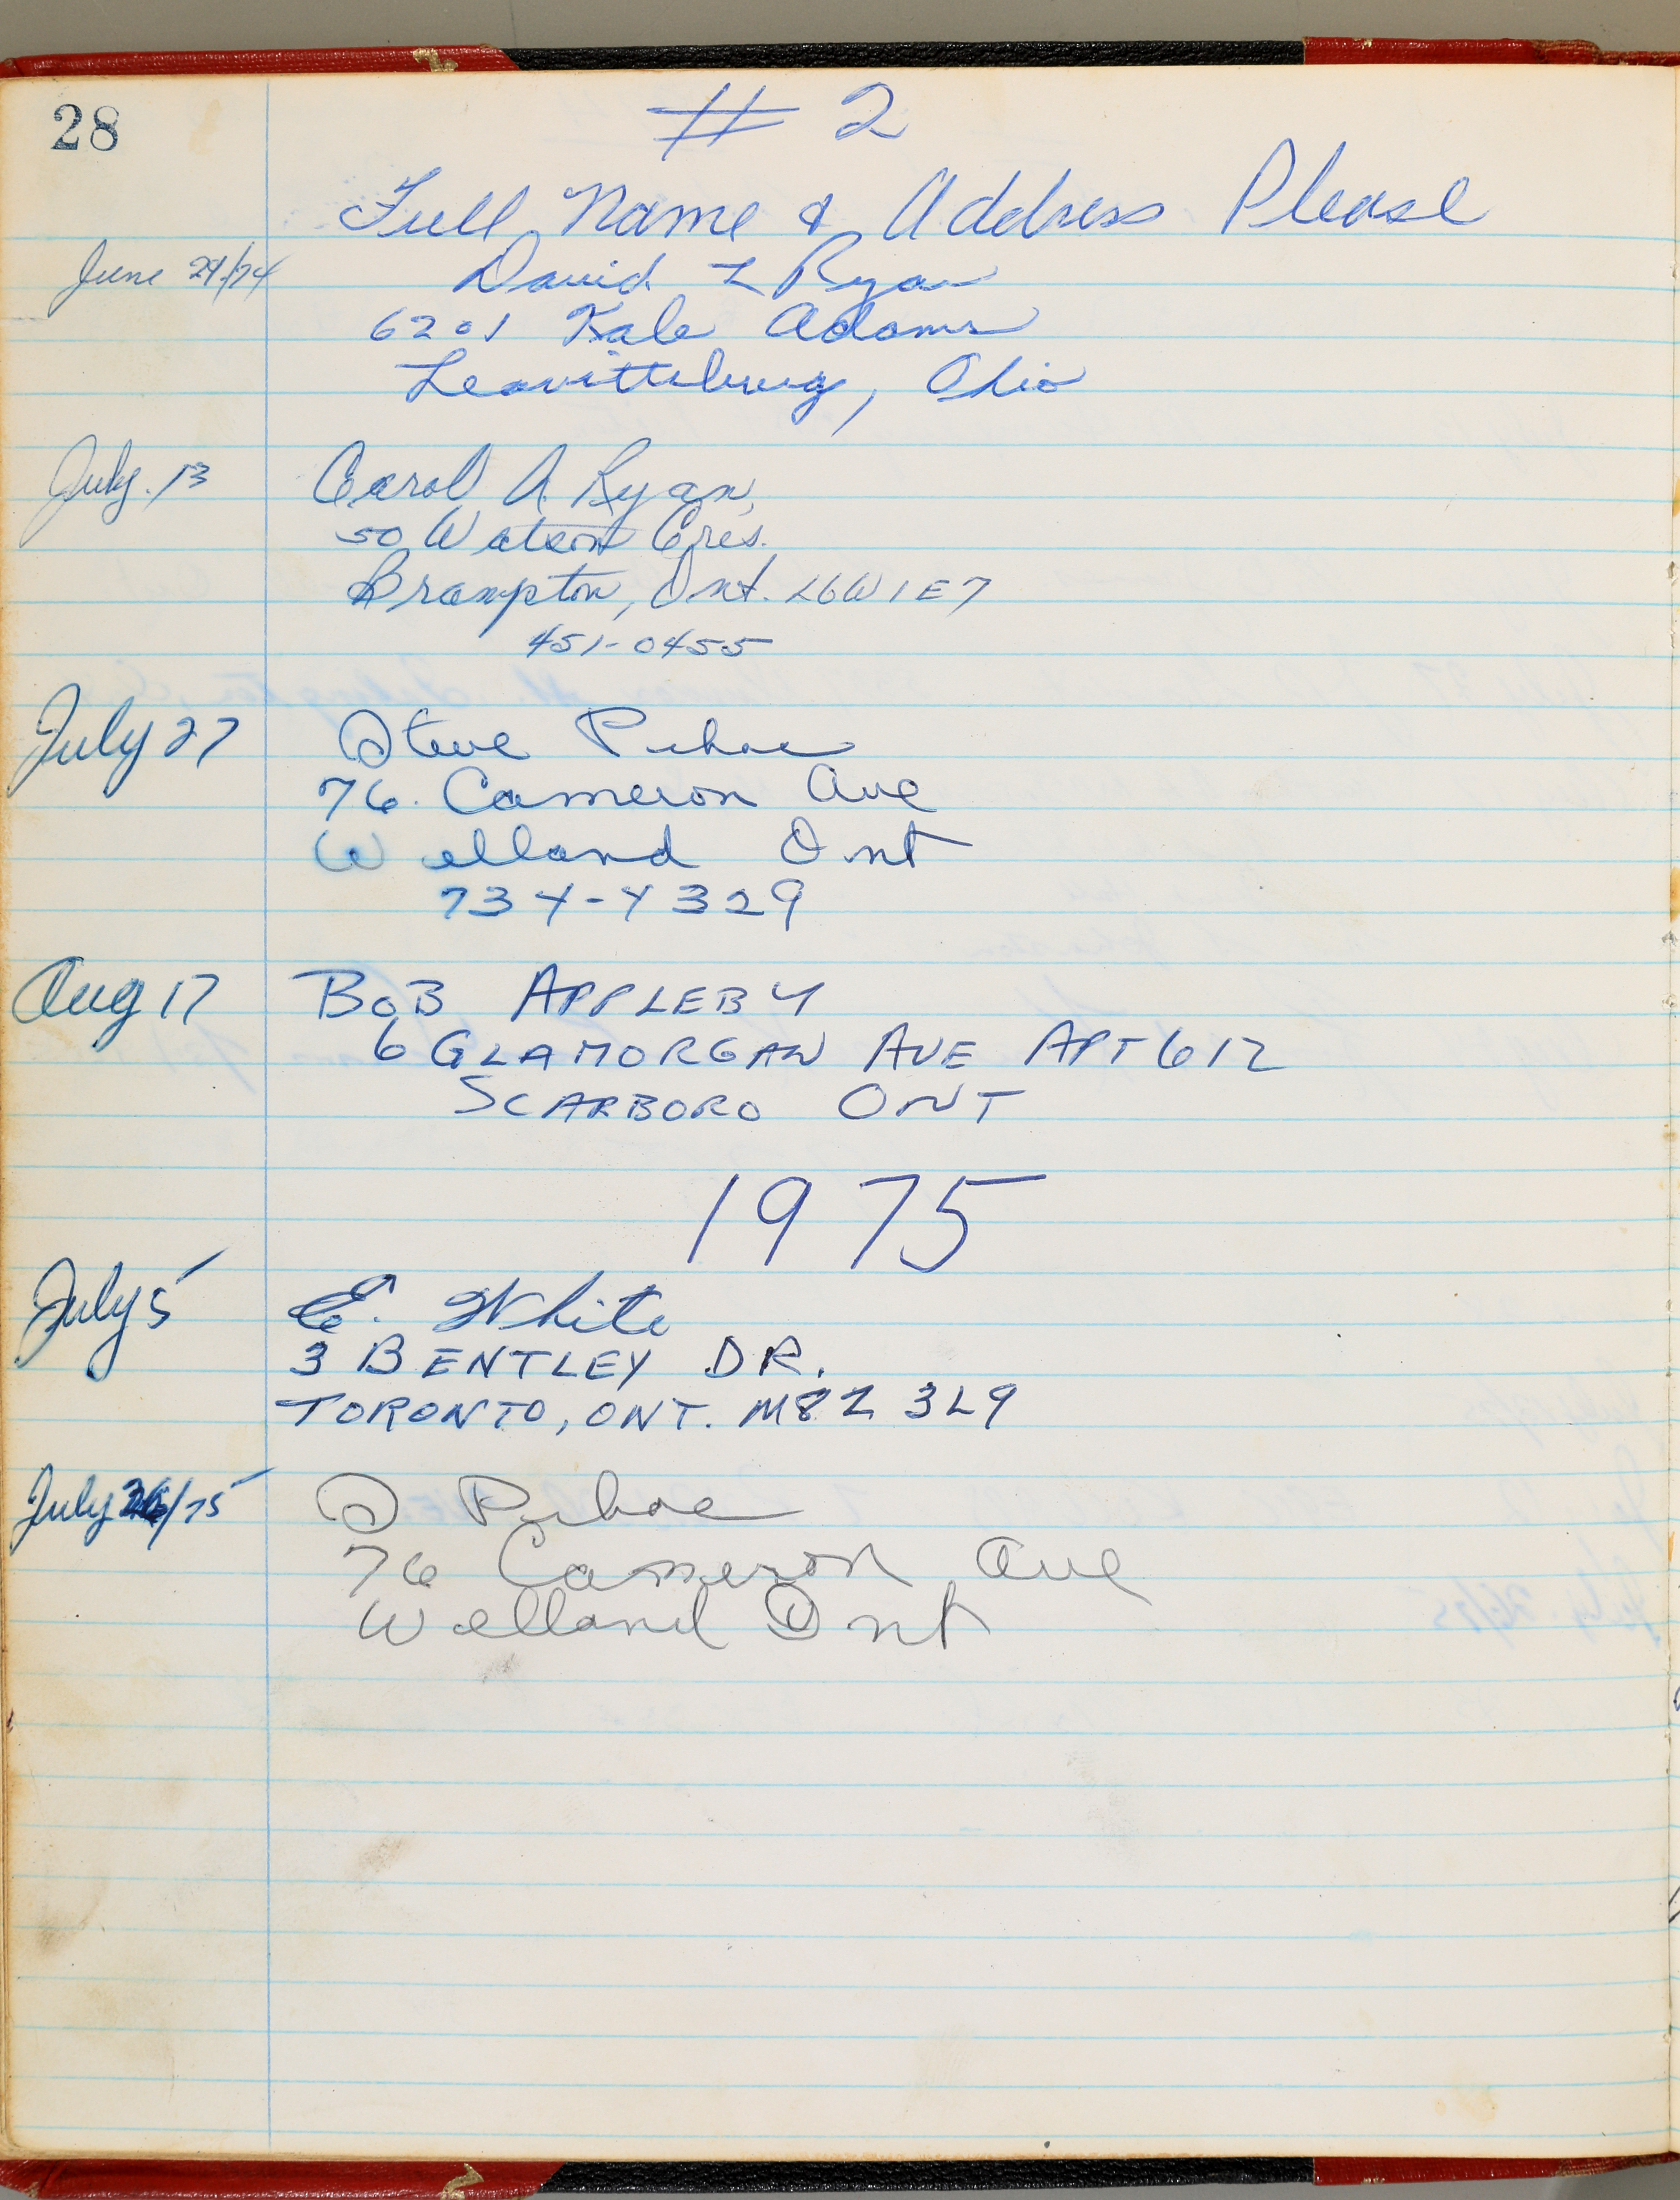 28
# 2
Full Name & Address Please
June 29/74 David L Ryan
6201 Kale Adams
Leavittsburg, Ohio
July. 13 Carol A. Ryan,
50 Watson Cres.
Brampton, Ont. L6W1E7
451-0455
July 27 Steve
76. Cameron Ave
Welland Ont
734-4329
Aug 17 BOB APPLEBY
6 GLAMORGAN AVE APT 612
SCARBORO ONT
1975
July 5 E. White
3 BENTLEY DR.
TORONTO, ONT. M8Z 3L9
July 26/75 S
76 Cameron Ave
Welland Ont